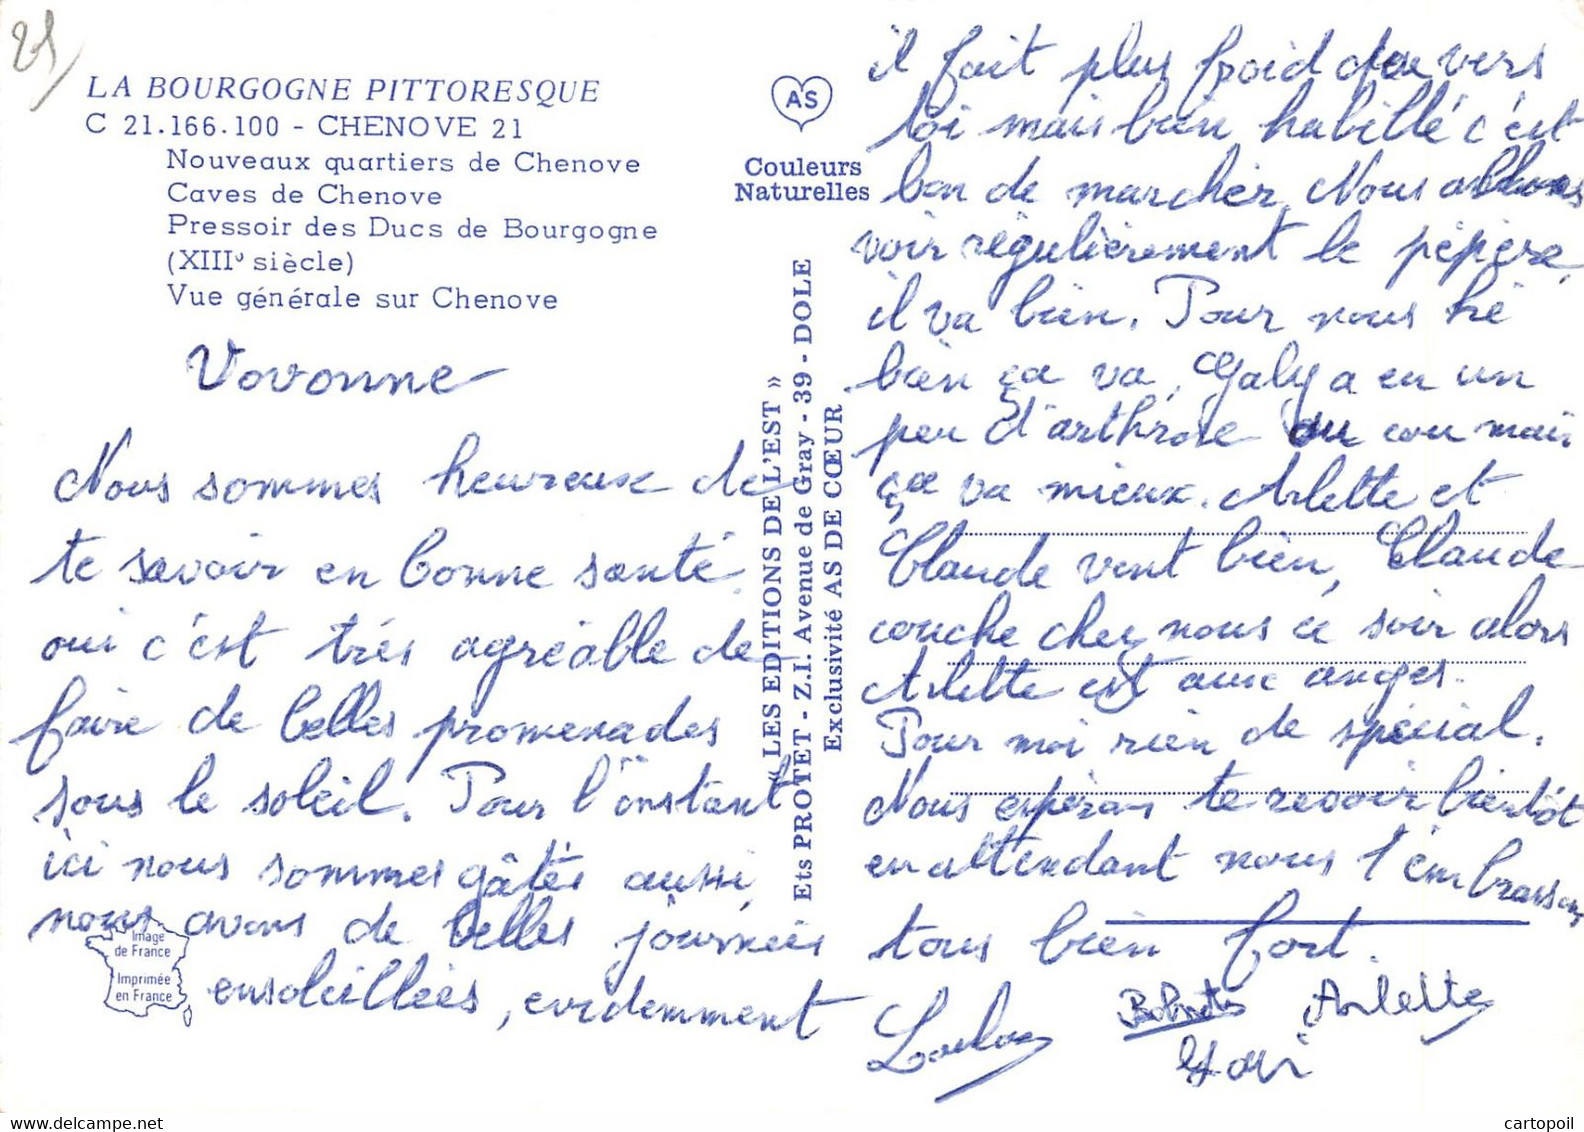 21
LA BOURGOGNE PITTORESQUE
C 21.166.100 - CHENOVE 21
Nouveaux quartiers de Chenove
Caves de Chenove
Pressoir des Ducs de Bourgogne
(XIIIᵉ siècle)
Vue générale sur Chenove
Vovonne
Nous sommes heureux de
te savoir en bonne santé
oui c'est très agréable de
faire de belles promenades
sous le soleil. Pour l'instant
ici nous sommes gâtés aussi,
nous avons de belles journées
ensoleillées, evidemment
Image
de France
Imprimée
en France
AS
Couleurs
Naturelles
« LES EDITIONS DE L'EST »
Ets PROTET - Z.I. Avenue de Gray - 39 - DOLE
Exclusivité AS DE CŒUR
il fait plus froid que vers
toi mais bien habillé c'est
bon de marcher. Nous allons
voir régulièrement le pépère,
il va bien. Pour nous hé
bien ça va, Gaby a eu un
peu d'arthrose au cou mais
ça va mieux. Arlette et
Claude vont bien, Claude
couche chez nous ce soir alors
Arlette est aux anges.
Pour moi rien de spécial.
Nous espérons te revoir bientôt
en attendant nous t'embrassons
tous bien fort.
Arlette
cartopoil